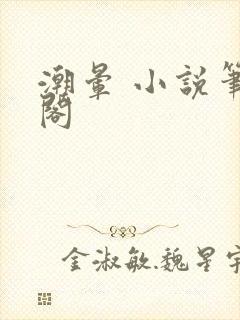 潮暈 小說筆
閣
金淑敏.魏星宇